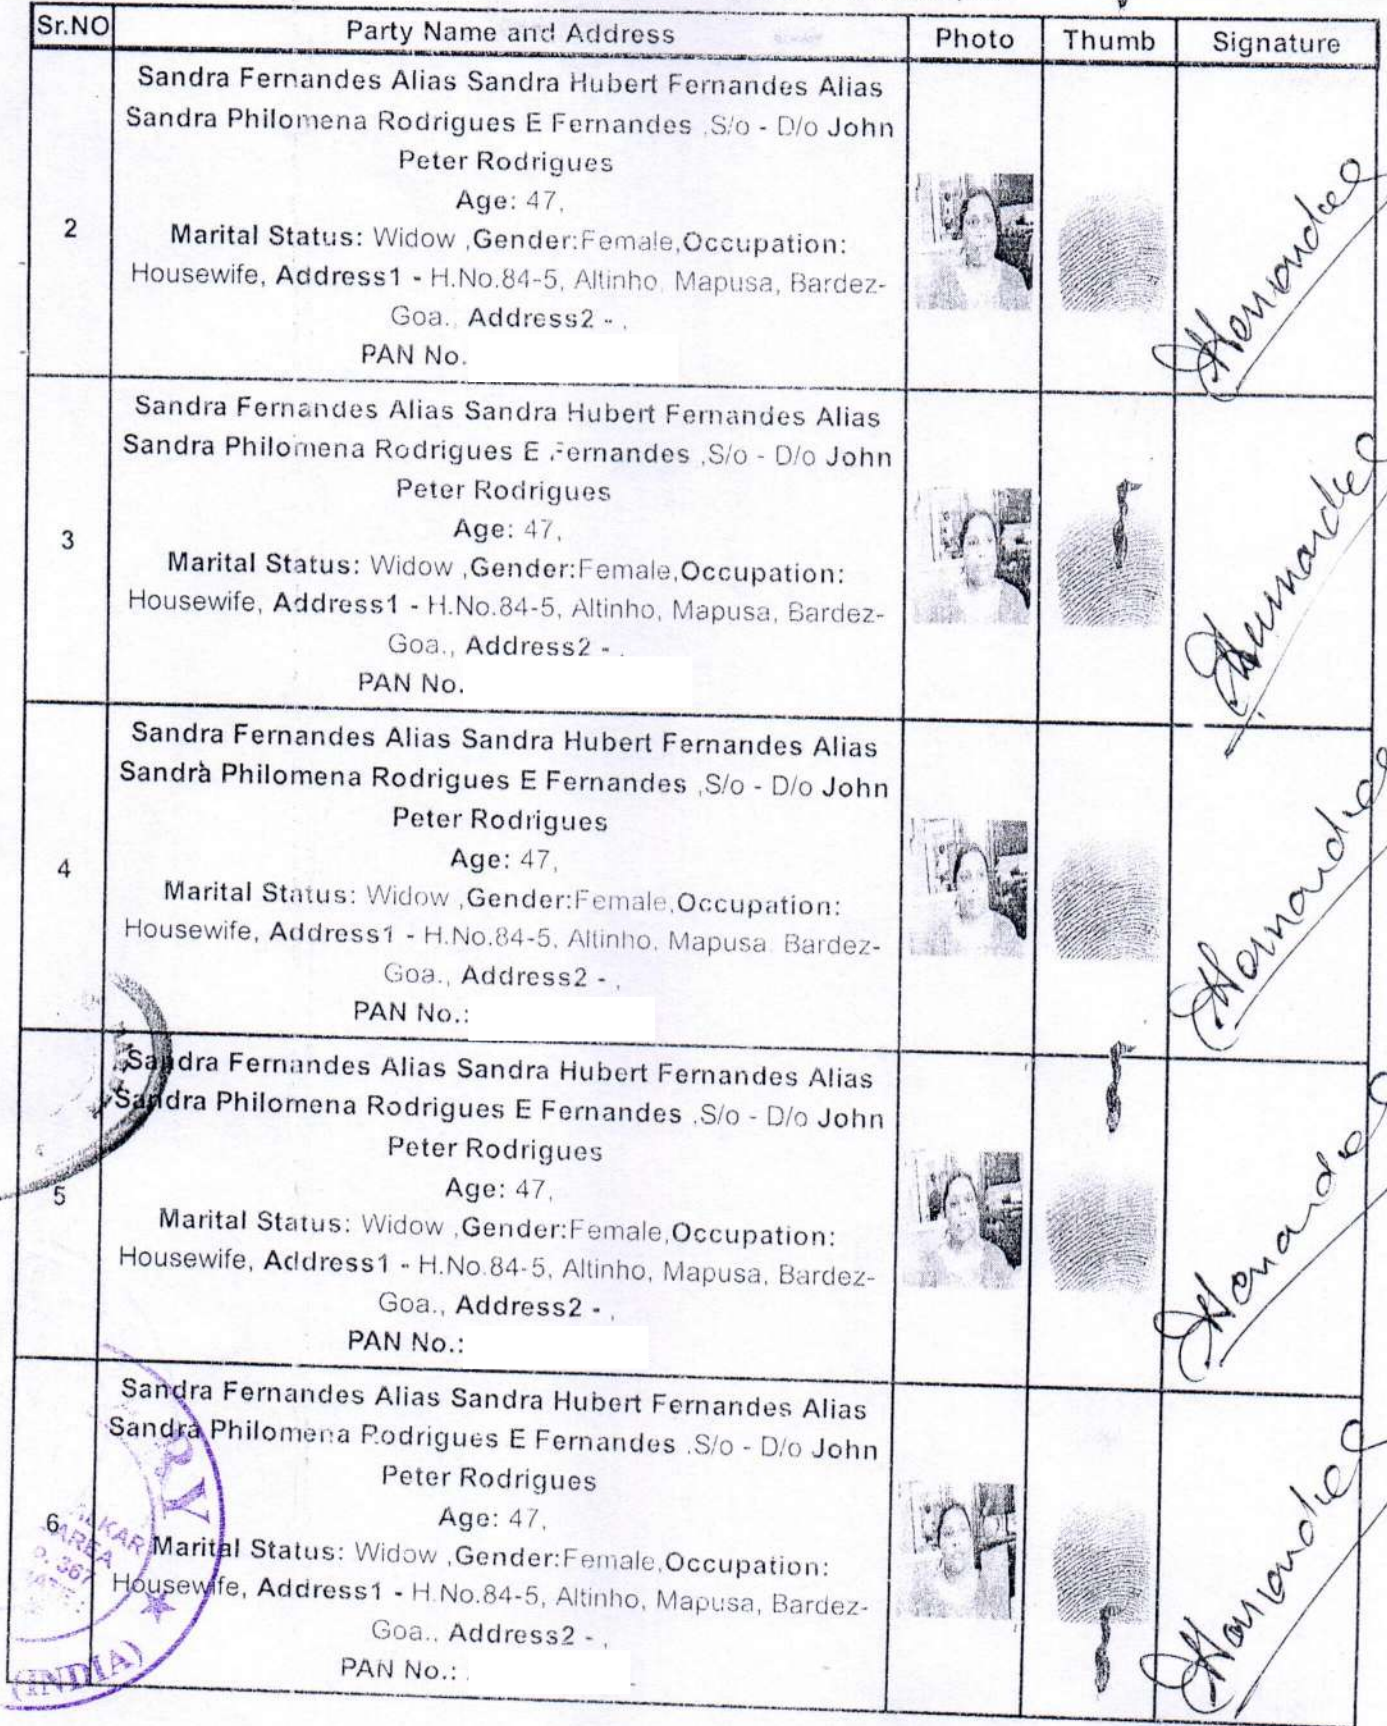 Sr.NO Party Name and Address Photo Thumb Signature
Sandra Fernandes Alias Sandra Hubert Fernandes Alias
Sandra Philomena Rodrigues E Fernandes ,S/o - D/o John
Peter Rodrigues
Age: 47,
2
Marital Status: Widow ,Gender:Female,Occupation:
Housewife, Address1 - H.No.84-5, Altinho, Mapusa, Bardez-
Goa., Address2 - ,
PAN No.
Sandra Fernandes Alias Sandra Hubert Fernandes Alias
Sandra Philomena Rodrigues E Fernandes ,S/o - D/o John
Peter Rodrigues
Age: 47,
3
Marital Status: Widow ,Gender:Female,Occupation:
Housewife, Address1 - H.No.84-5, Altinho, Mapusa, Bardez-
Goa., Address2 - ,
PAN No.
Sandra Fernandes Alias Sandra Hubert Fernandes Alias
Sandra Philomena Rodrigues E Fernandes ,S/o - D/o John
Peter Rodrigues
Age: 47,
4
Marital Status: Widow ,Gender:Female,Occupation:
Housewife, Address1 - H.No.84-5, Altinho, Mapusa, Bardez-
Goa., Address2 - ,
PAN No.:
Sandra Fernandes Alias Sandra Hubert Fernandes Alias
Sandra Philomena Rodrigues E Fernandes ,S/o - D/o John
Peter Rodrigues
Age: 47,
5
Marital Status: Widow ,Gender:Female,Occupation:
Housewife, Address1 - H.No.84-5, Altinho, Mapusa, Bardez-
Goa., Address2 - ,
PAN No.:
Sandra Fernandes Alias Sandra Hubert Fernandes Alias
Sandra Philomena Rodrigues E Fernandes ,S/o - D/o John
Peter Rodrigues
Age: 47,
6
Marital Status: Widow ,Gender:Female,Occupation:
Housewife, Address1 - H.No.84-5, Altinho, Mapusa, Bardez-
Goa., Address2 - ,
PAN No.:
AREA
367
(INDIA)